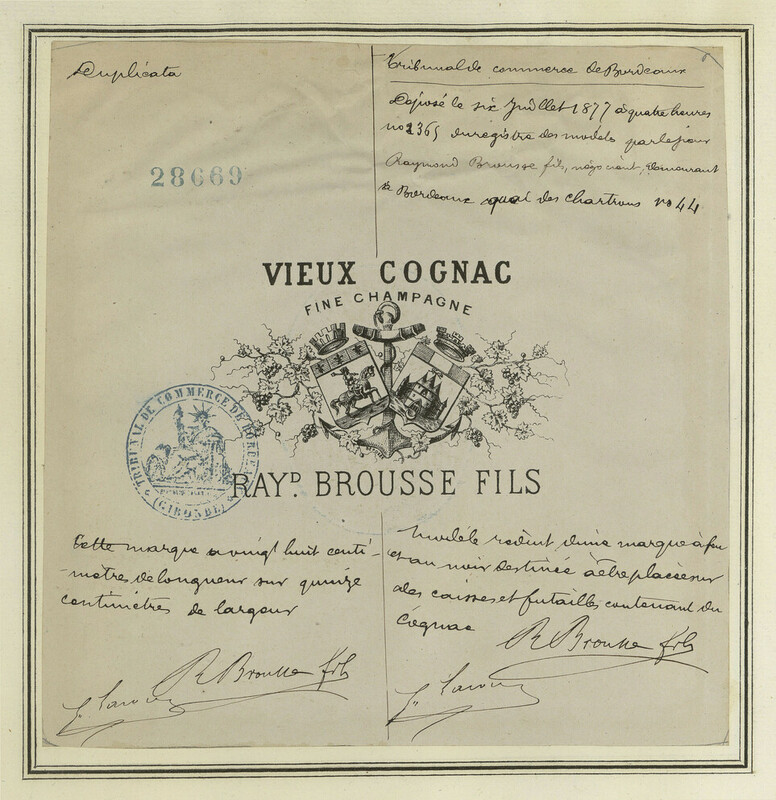 Duplicata
Tribunal de commerce de Bordeaux
Déposé le six Juillet 1877 à quatre heures
no 2365 du registre des modèles par le sieur
Raymond Brousse fils, négociant, demeurant
à Bordeaux quai des chartrons no 44
28669
VIEUX COGNAC
FINE CHAMPAGNE
TRIBUNAL DE COMMERCE DE BORDEAUX
(GIRONDE)
RAYD. BROUSSE FILS
Cette marque a vingt huit centi-
-mètres de longueur sur quinze
centimètres de largeur
R Brousse fils
Modèle réduit d'une marque à feu
et au noir destinée à être placée sur
des caisses et futailles contenant du
Cognac
R Brousse fils